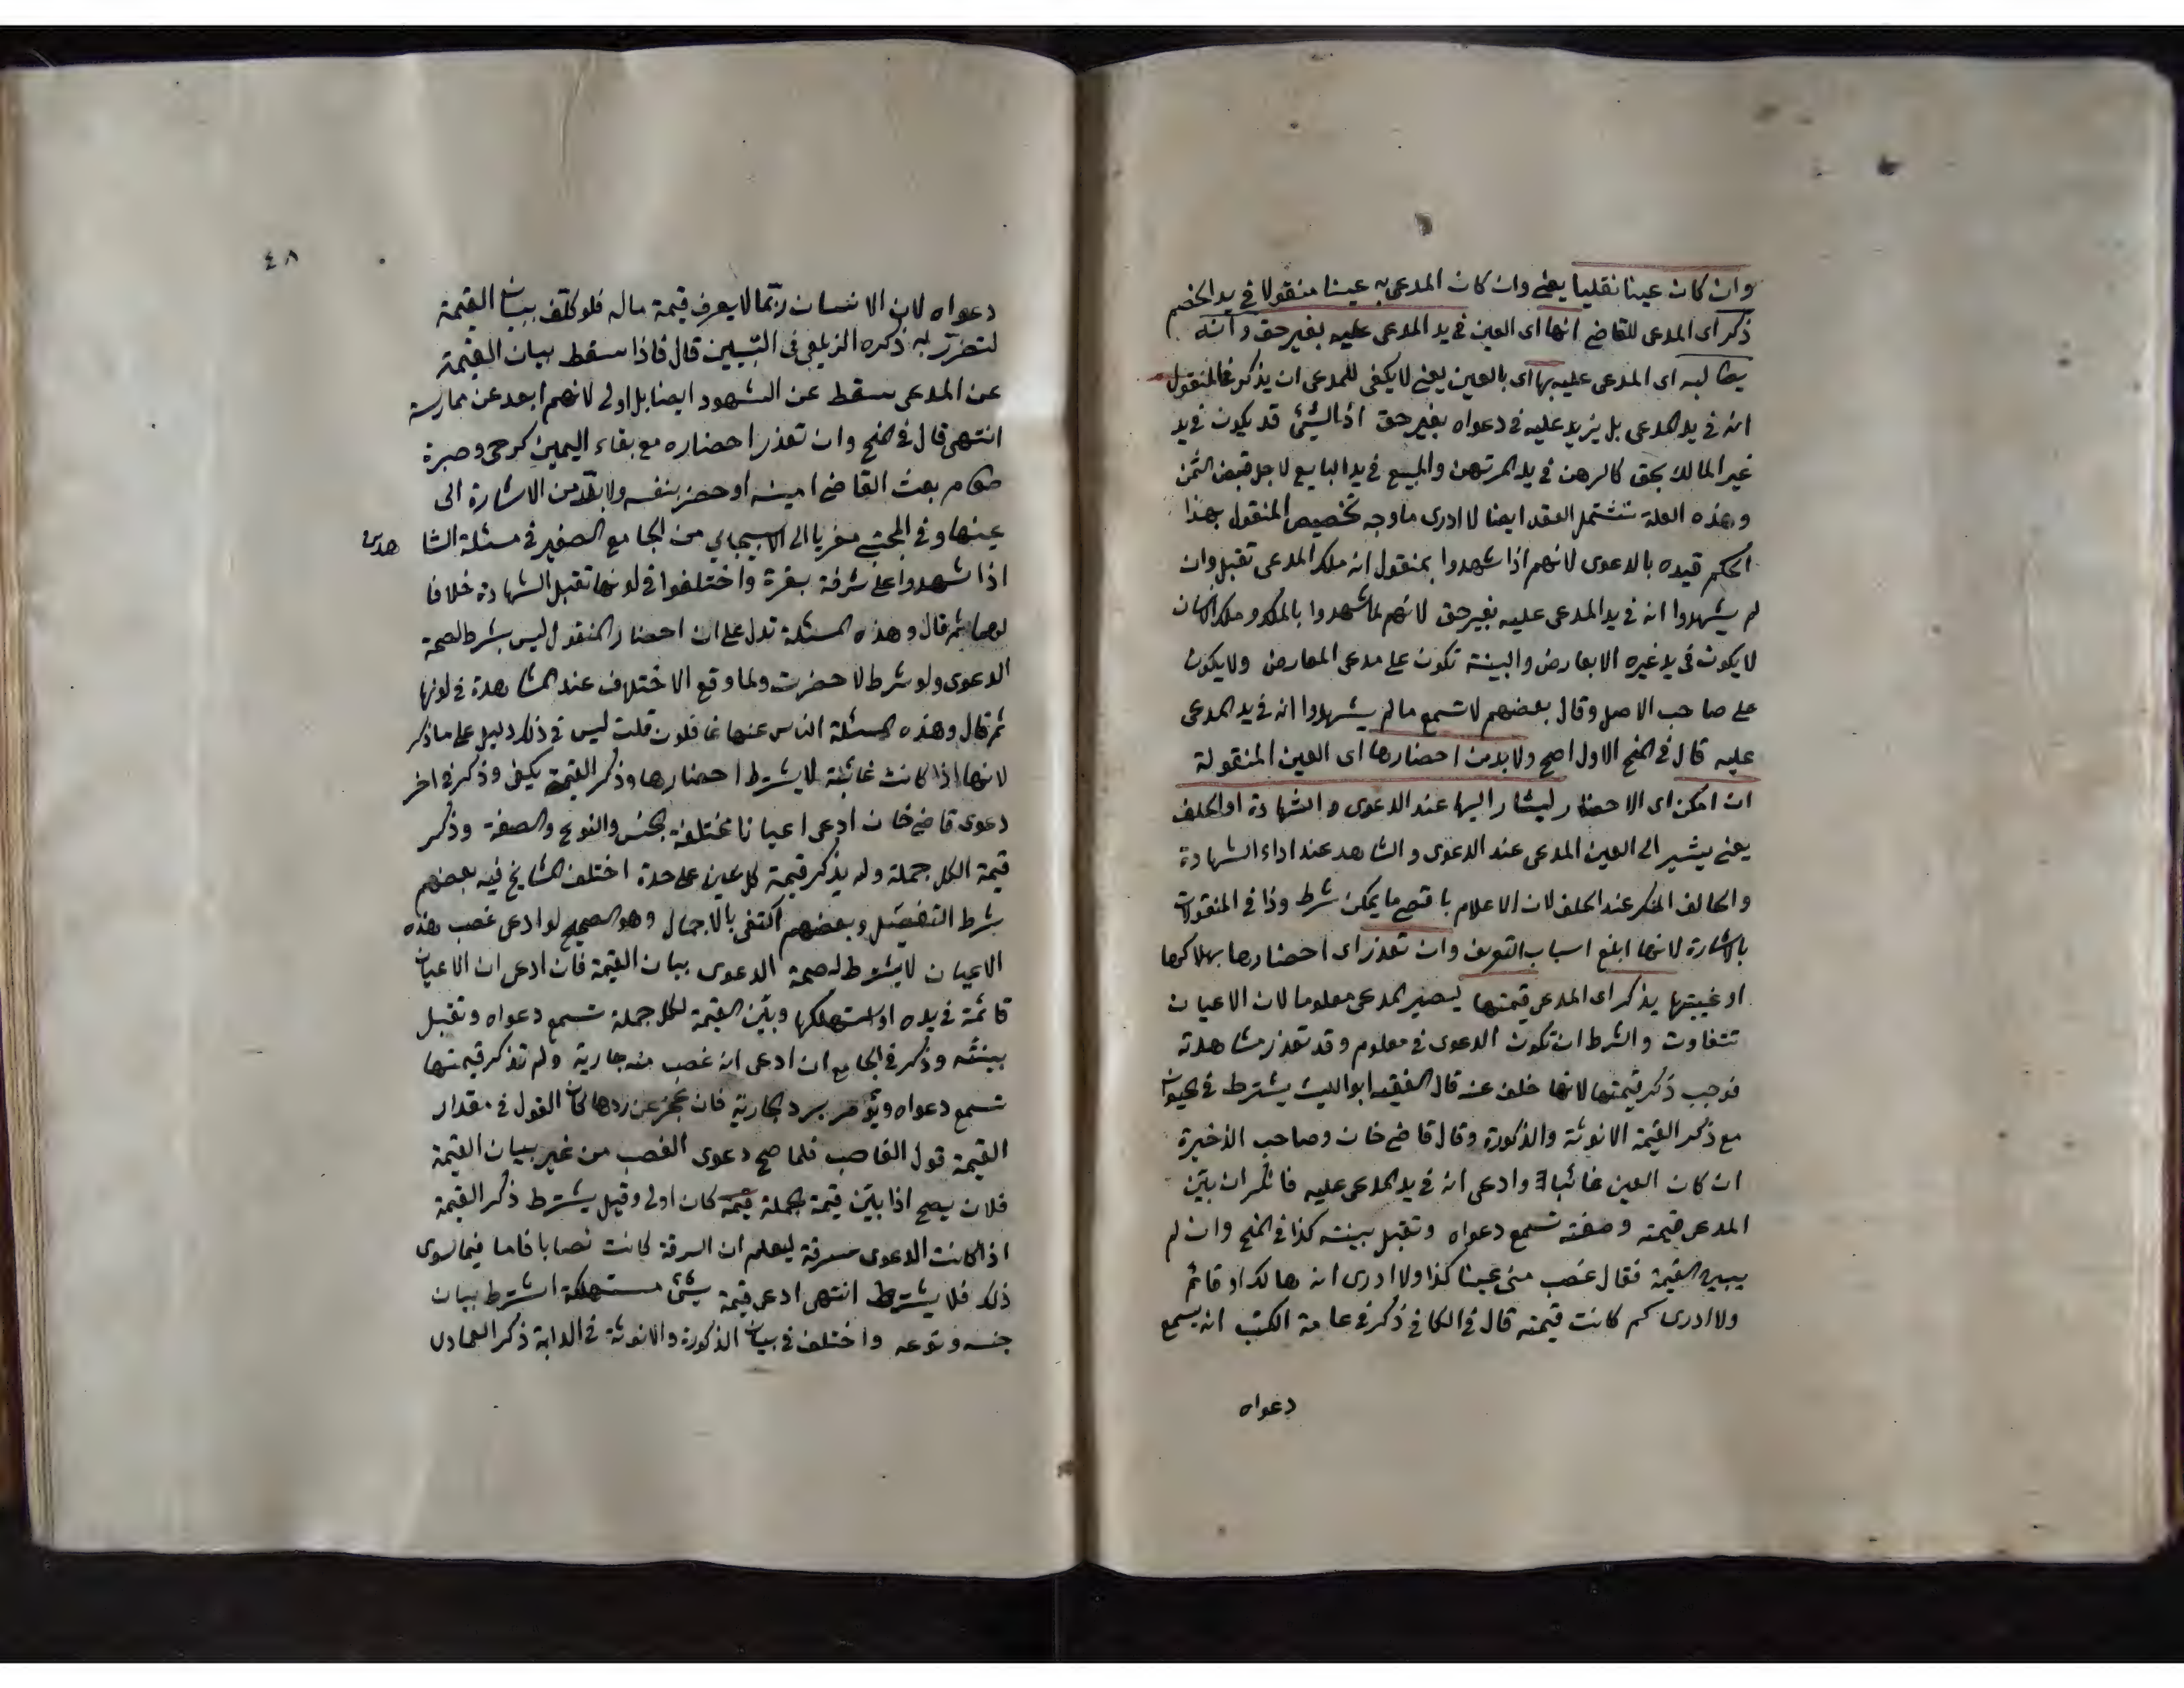 وان كان عينا نقليا يعني وان كان المدعى به عينا منقولا في يد الخصم
ذكر اى المدعى للقاضي انها اى العين في يد المدعى عليه بغير حق وانه
يطالبه اى المدعى عليه بها اى بالعين يعني لا يكفى للمدعى ان يذكر في المنقول
انه في يد المدعى بل يزيد عليه في دعواه بغير حق اذ الشئ قد يكون في يد
غير المالك بحق كالرهن في يد المرتهن والمبيع في يد البايع لاجل قبض الثمن
وهذه العلة تشتمل العقد ايضا لا ادرى ما وجه تخصيص المنقول بهذا
الحكم قيده بالدعوى لانهم اذا شهدوا بمنقول انه ملك المدعى تقبل وان
لم يشهدوا انه في يد المدعى عليه بغير حق لانهم لما شهدوا بالملك وملك الانسان
لا يكون في يد غيره الا بعارض والبينة تكون على مدعى المعارض ولا يكون
على صاحب الاصل وقال بعضهم لا تسمع ما لم يشهدوا انه في يد المدعى
عليه قال في المنح الاول اصح ولا بد من احضارها اى العين المنقولة
ان امكن اى الاحضار ليشار اليها عند الدعوى والشهادة او الحلف
يعني يشير الى العين المدعى عند الدعوى والشاهد عند اداء الشهادة
والحالف المنكر عند الحلف لان الاعلام باقصى ما يمكن شرط وذا في المنقولات
بالاشارة لانها ابلغ اسباب التعريف وان تعذر اى احضارها بهلاكها
او غيبتها يذكر اى المدعى قيمتها ليصير المدعى معلوما لان الاعيان
تتفاوت والشرط ان تكون الدعوى في معلوم وقد تعذر مشاهدته
فوجب ذكر قيمتها لانها خلف عنه قال الفقيه ابو الليث يشترط في الحيوان
مع ذكر القيمة الانوثة والذكورة وقال قاضي خان وصاحب الذخيرة
ان كان العين غائبا وادعى انه في يد المدعى عليه فانكر ان بيّن
المدعى قيمته وصفته تسمع دعواه وتقبل بينته كذا في المنح وان لم
يبين القيمة فقال غصب منى عينا كذا ولا ادرى انه هالك او قائم
ولا ادرى كم كانت قيمته قال في الكافي ذكر في عامة الكتب انه يسمع
دعواه
٤٨
دعواه لان الانسان ربّما لا يعرف قيمة ماله فلو كلّف ببيان القيمة
لتضرّر به ذكره الزيلعى فى التبيين قال فاذا سقط بيان القيمة
عن المدعى سقط عن الشهود ايضا بل اولى لانهم ابعد عن ممارسة
انتهى قال في المنح وان تعذر احضاره مع بقاء اليمين كرحى وصبرة
طعام بعث القاضي امينه او حضر بنفسه ولا بدّ من الاشارة الى
عينها وفي المجتبى معزيا الى الاسبيجابي من الجامع الصغير في مسئلة الشا
هدين
اذا شهدوا على سرقة بقرة واختلفوا في لونها تقبل الشهادة خلافا
لهما ثم قال وهذه المسئلة تدل على ان احضار المنقول ليس بشرط لصحة
الدعوى ولو شرط لاحضرت ولما وقع الاختلاف عند المشاهدة في لونها
ثم قال وهذه المسئلة الناس عنها غافلون قلت ليس في ذلك دليل على ما ذكر
لانها اذا كانت غائبة لا يشترط احضارها وذكر القيمة يكفى وذكر في اخر
دعوى قاضي خان ادعى اعيانا مختلفة الجنس والنوع والصفة وذكر
قيمة الكل جملة ولم يذكر قيمة كل عين على حدة اختلف المشايخ فيه بعضهم
شرط التفصيل وبعضهم اكتفى بالاجمال وهو الصحيح لو ادعى غصب هذه
الاعيان لا يشترط لصحة الدعوى بيان القيمة فان ادعى ان الاعيان
قائمة في يده او استهلكها وبيّن القيمة لكل جملة تسمع دعواه وتقبل
بينته وذكر في الجامع ان ادعى انه غصب منه جارية ولم تذكر قيمتها
تسمع دعواه ويؤمر برد الجارية فان عجز عن ردها كان القول في مقدار
القيمة قول الغاصب فلما صح دعوى الغصب من غير بيان القيمة
فلان يصح اذا بيّن قيمة الجملة قيمة كان اولى وقيل يشترط ذكر القيمة
اذا كانت الدعوى سرقة ليعلم ان السرقة كانت نصابا فاما فيما سوى
ذلك فلا يشترط انتهى ادعى قيمة شئ مستهلكة اشترط بيان
جنسه ونوعه واختلف في بيان الذكورة والانوثة في الدابة ذكر العمادى